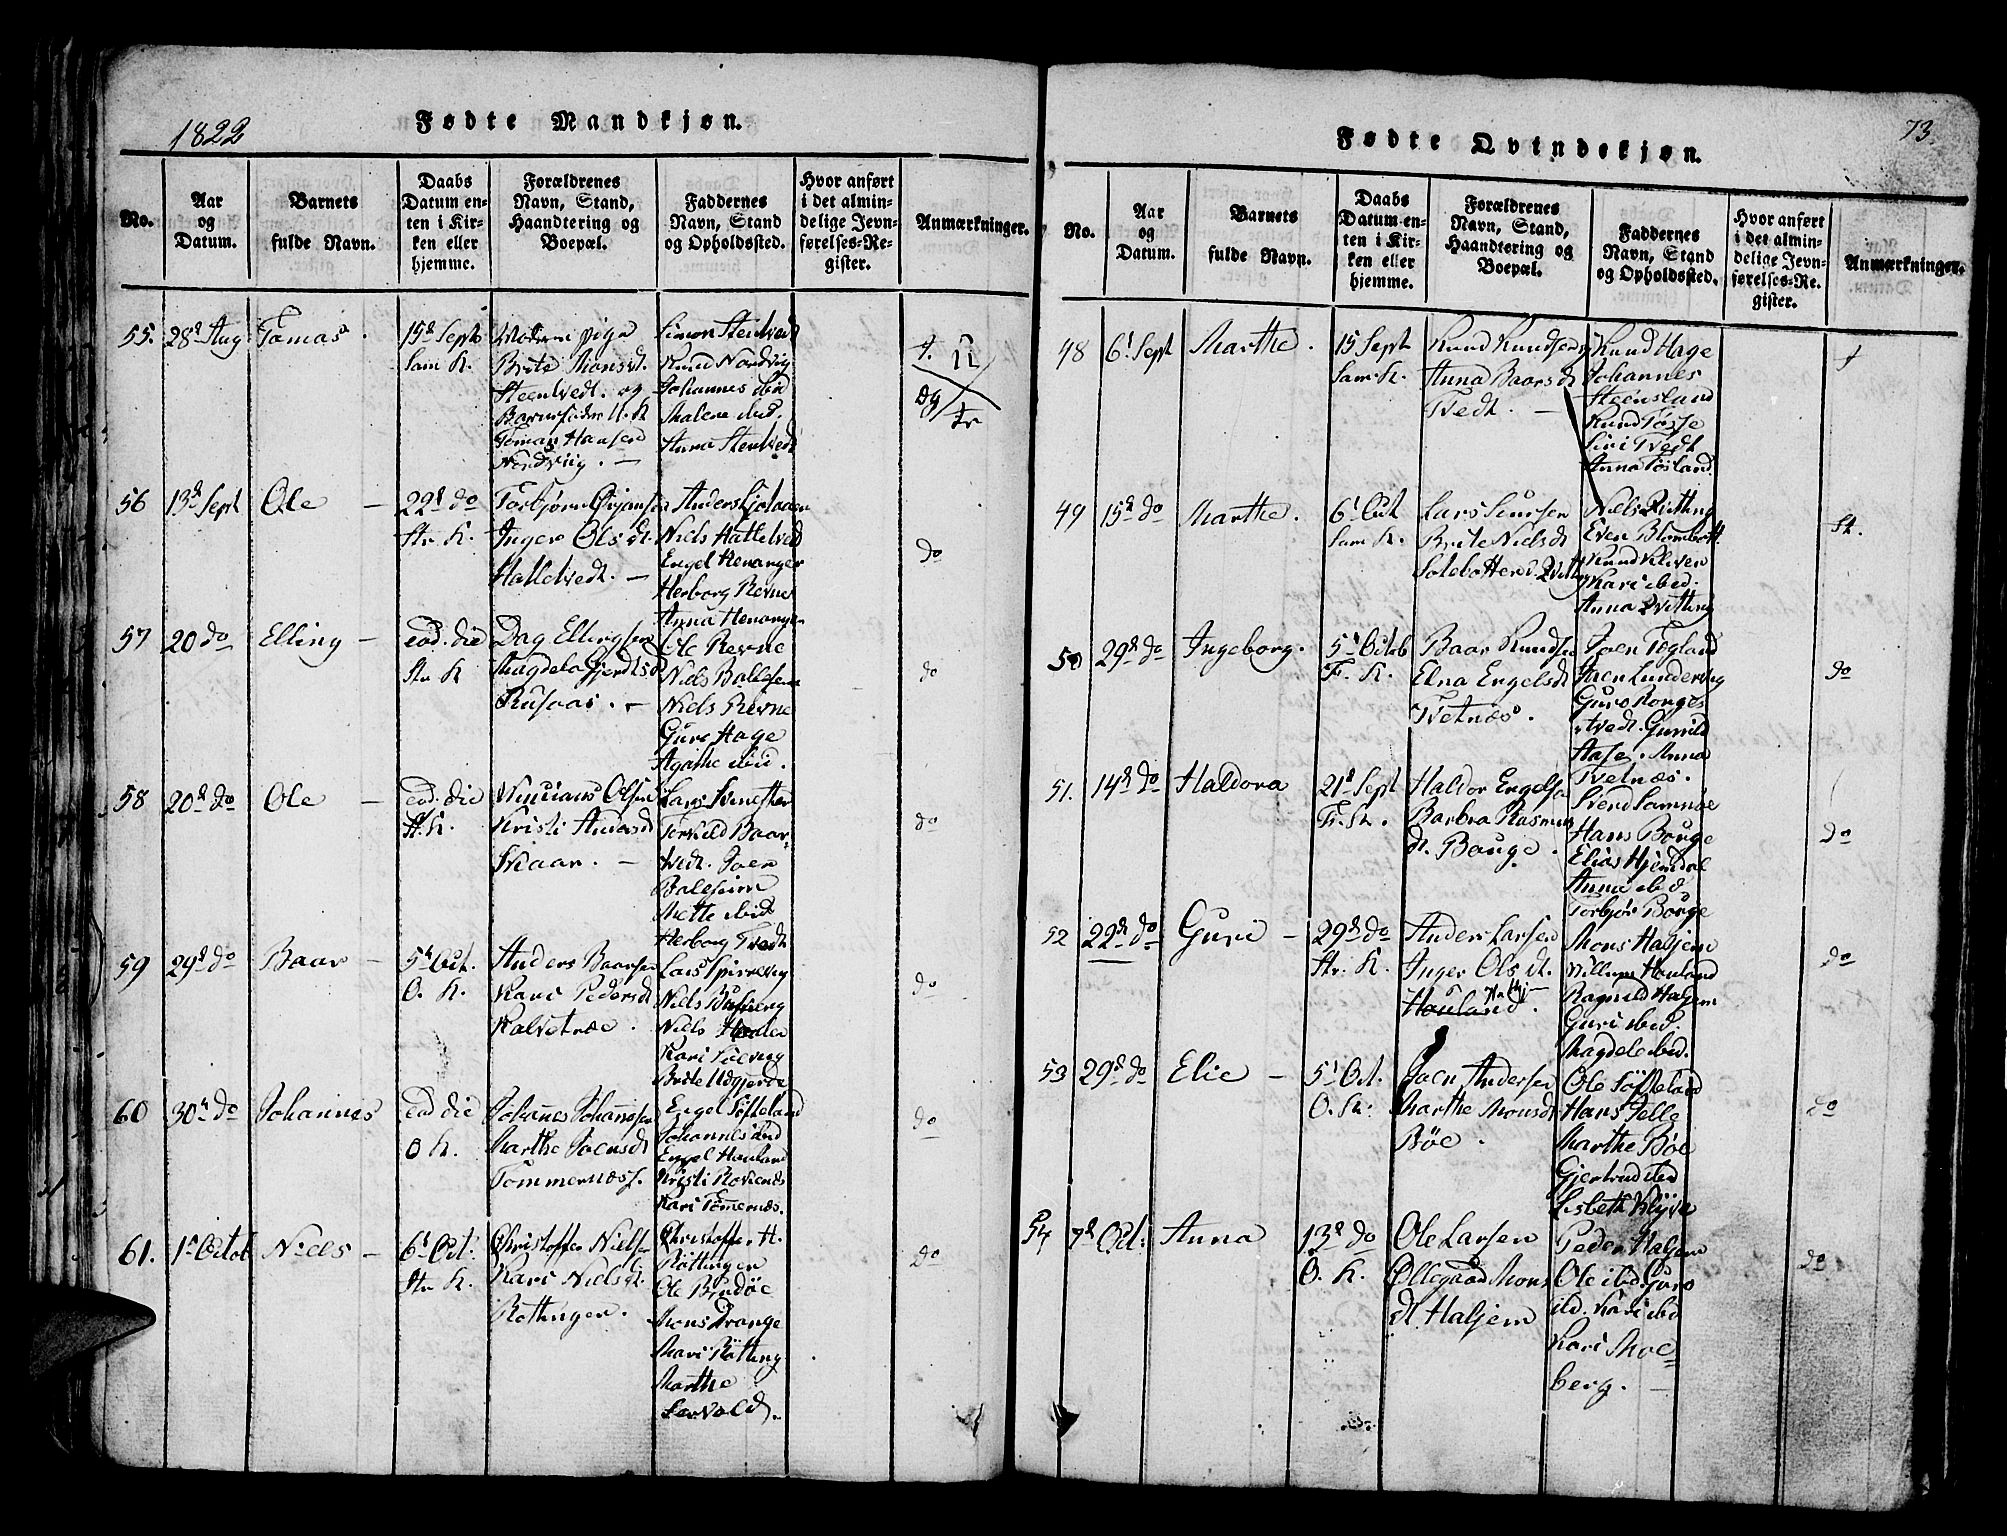 1822
Fødte Mandkjøn.
No.
Aar
og
Datum.
Barnets
fulde Navn.
Daabs
Datum en-
ten i Kir-
ken eller
hjemme.
Forældrenes
Navn, Stand,
Haandtering og
Boepæl.
Faddernes
Navn, Stand
og Opholdssted.
Hvor anført
i det almin-
delige Jevn-
førelses-Re-
gister.
Anmærkninger.
55. 28d Aug Tomas.
15d Sept
Sam K.
Brite Monsdt.
Steenvedt. og
Barnefader
Tomas Hansen
Nordviig. —
Simon Steenvedt
Knud Nordvig
Johannes ibid
Malene ibid.
Anna Steenvedt
56 13d Sept Ole —
22d do
Str. K.
Torbjørn
Inger Olsdt.
Hattelvedt. —
Anders
Niels Hattelvedt
Engel Henanger
Herborg Revne
Anna Henanger
do
57 20 do Elling —
eod. die
Str K
Dag Ellingsen
Magdela Gjerdtsd
Rusaas. —
Ole Revne
Niels Ballesem
Niels Revne
Guro Hage
Agathe ibid.
do
58 20d do Ole —
eod. die
St. K.
Olsen
Kristi Andersdt
Skaar. —
Lars
Torkild Baar-
tvedt. Joen
Balesem
Mette ibid
Herborg Tvedt
do
59 29d do Baar —
5t Oct.
O. K.
Anders Baarsen
Kari Pedersdt
Kalvetræe.
Lars Spirrevig
Niels
Niels
Kari
Brite Udgjerde
do
60 30t do Johannes
eod die
O K.
Johañes Johañesen
Marthe Joensdt
Tømmernæss.
Engel Søfteland
Johannes ibid
Engel Houland
Kristi Rovenæs
Kari Tømernæs.
do
61. 1s Octob Niels —
6t Oct.
Str K.
Christoffer Nielsen
Kari Nielsdt.
Røttinger.
Christoffer H.
Røttinger
Ole
Mons Drange
Mari Røtting
Marthe
Lervold.
do
73.
Fødte Qvindekjøn.
No.
Aar
og
Datum.
Barnets
fulde Navn.
Daabs
Datum en-
ten i Kir-
ken eller
hjemme.
Forældrenes
Navn, Stand,
Haandtering og
Boepæl.
Faddernes
Navn, Stand
og Opholdssted.
Hvor anført
i det almin-
delige Jevn-
førelses-Re-
gister.
Anmærkninger.
48 6t Sept Marthe.
15 Sept
Sam. K.
Knud Knudsen
Anna Baarsdt
Tvedt. —
Knud Hage
Johannes
Steensland
Knud Tøsse
Siri Tvedt
Anna Tøsland.
49 15d do Marthe.
6t Oct
Sam K.
Lars
Brite Nielsdt
Solebotten
Niels
Even
Knud Kleven
Kari ibid.
Anna Qvitting
St.
50 29d do Ingeborg.
5t Octob
F. K.
Baar Knudsen
Elna Engelsdt
Tvetnæs.
Joen Tøgland
Joen Lundervig
Guro Ronges
tvedt. Gunild
Aase. Anna
Tvetnæs.
do
51. 14d do Haldora
21d Sept
Haldor Engelsen
Barbra Rasmus
dt. Bouge.
Svend Samnøe
Hans Bouge
Elias Hjemdal
Anna ibid
Torbjør Bouge
do
52 22d do Guri —
29d do
Str. K.
Anders Larsen
Inger Olsdt.
Houland.
Mons Haljem
Willum Houland
Ragnild Haljem
Guri ibid.
Magdele ibid.
do
53 29d do Elie —
5t Oct.
O. K.
Joen Andersen
Marthe Monsdt
Bøe.
Ole Søfteland
Hans Jelle
Marthe Bøe
Gjertrud ibid
Lisbeth Klyve
do
54 7d Oct. Anna
13d do
O. K.
Ole Larsen
Ollegaard Mons
dt Haljem
Peder Haljem
Ole ibid. Guro
ibd. Kari ibid
Kari Moe-
berg. —
do